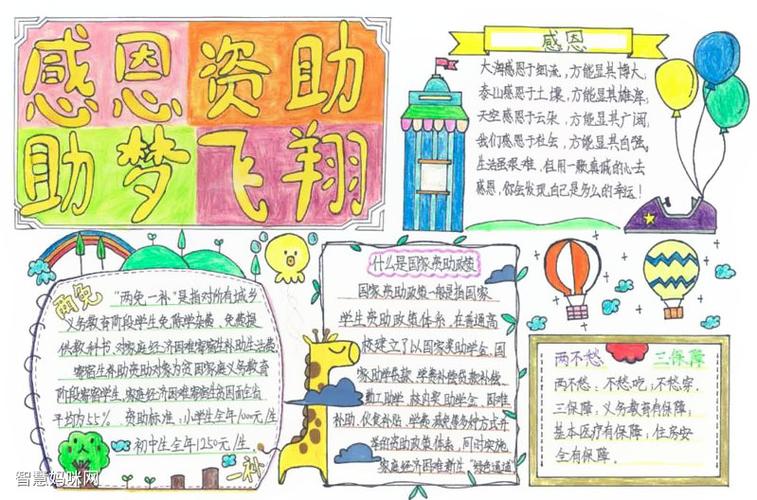 感恩资助
助梦飞翔
感恩
大海感恩于细流,方能显其博大;
泰山感恩于土壤,方能显其雄浑;
天空感恩于云朵,方能显其广阔;
我们感恩于社会,方能显其自强。
生活虽艰难,但用一颗真诚的心去
感恩,你会发现自己是多么的幸运!
两免
"两免一补"是指对所有城乡
义务教育阶段学生免除学杂费、免费提
供教科书,对家庭经济困难寄宿生补助生活费
寄宿生补助资助对象为贫困家庭义务教育
阶段寄宿学生,家庭经济困难寄宿生贫困面全省
平均为55%。资助标准:小学生全年1000元/生
初中生全年1250元/生。
一补
什么是国家资助政策
国家资助政策一般是指国家
学生资助政策体系,在普通高
校建立了以国家奖助学金、国
家助学贷款、学费补偿贷款代偿、
勤工助学、校内奖助学金、困难
补助、伙食补贴、学费减免等多种方式并
举的资助政策体系,同时实施
家庭经济困难新生"绿色通道"
两不愁 三保障
两不愁:不愁吃;不愁穿.
三保障:义务教育有保障;
基本医疗有保障;住房安
全有保障.
智慧妈咪网